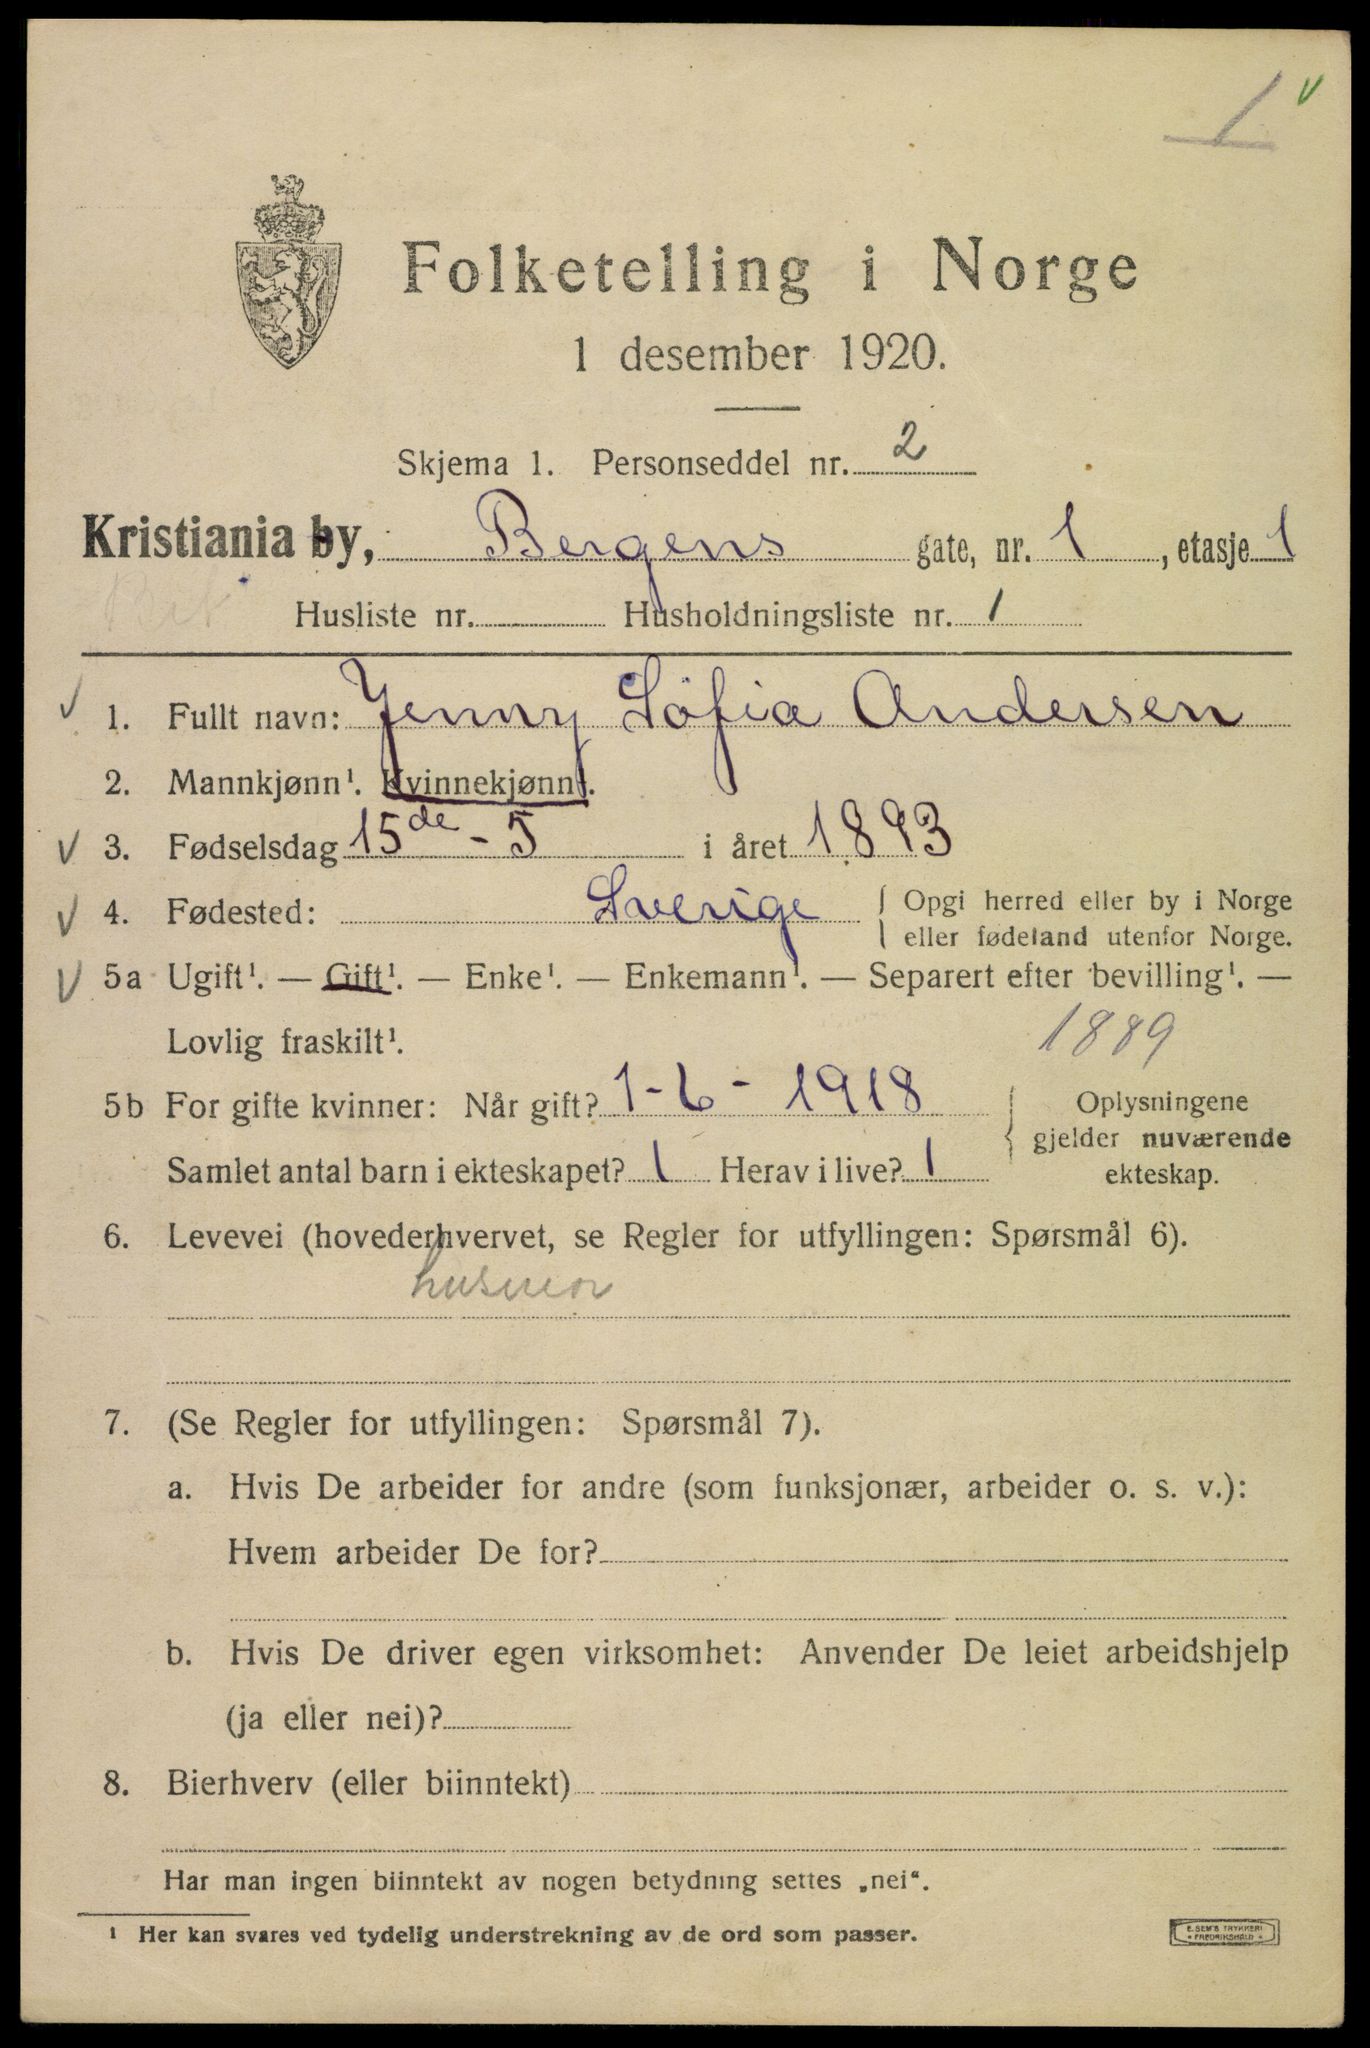 1 v
Folketelling i Norge
1 desember 1920.
Skjema 1. Personseddel nr. 2
Kristiania by, Bergens gate, nr. 1, etasje 1
Husliste nr. Husholdningsliste nr. 1
1. Fullt navn: Jenny Sofia Andersen
2. Mannkjønn¹. Kvinnekjønn¹.
3. Fødselsdag 15de - 5 i året 1893
4. Fødested: Sverige { Opgi herred eller by i Norge
eller fødeland utenfor Norge.
5a Ugift¹. — Gift¹. — Enke¹. — Enkemann¹. — Separert efter bevilling¹. —
Lovlig fraskilt¹. 1889
5b For gifte kvinner: Når gift? 1-6-1918
Samlet antal barn i ekteskapet? 1 Herav i live? 1
Oplysningene
gjelder nuværende
ekteskap.
6. Levevei (hovederhvervet, se Regler for utfyllingen: Spørsmål 6).
husmor
7. (Se Regler for utfyllingen: Spørsmål 7).
a. Hvis De arbeider for andre (som funksjonær, arbeider o. s. v.):
Hvem arbeider De for?
b. Hvis De driver egen virksomhet: Anvender De leiet arbeidshjelp
(ja eller nei)?
8. Bierhverv (eller biinntekt)
Har man ingen biinntekt av nogen betydning settes „nei“.
¹ Her kan svares ved tydelig understrekning av de ord som passer.
E. SEM'S TRYKKERI
FREDRIKSHALD